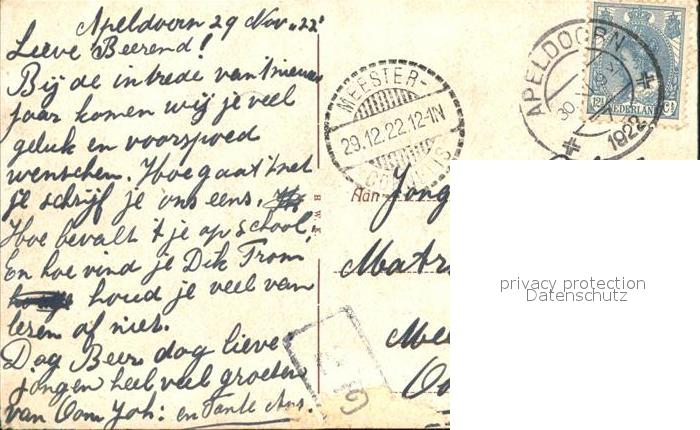 Apeldoorn 29 Nov '22
Lieve Beerend!
Bij de intrede van 't nieuwe
jaar komen wij je veel
geluk en voorspoed
wenschen. Hoe gaat 't met
je schrijf je ons eens.
Hoe bevalt 't je op school,
En hoe vind je Dik Trom
houd je veel van
lezen of niet.
Dag Beer dag lieve
jongen heel veel groeten
van Oom Joh: en Tante
MEESTER-
29.12.22.12-1N
CORNELIS
APELDOORN
1922
NEDERLAND
B.W.K.
Aan Jong
Matr
Mee
privacy protection
Datenschutz